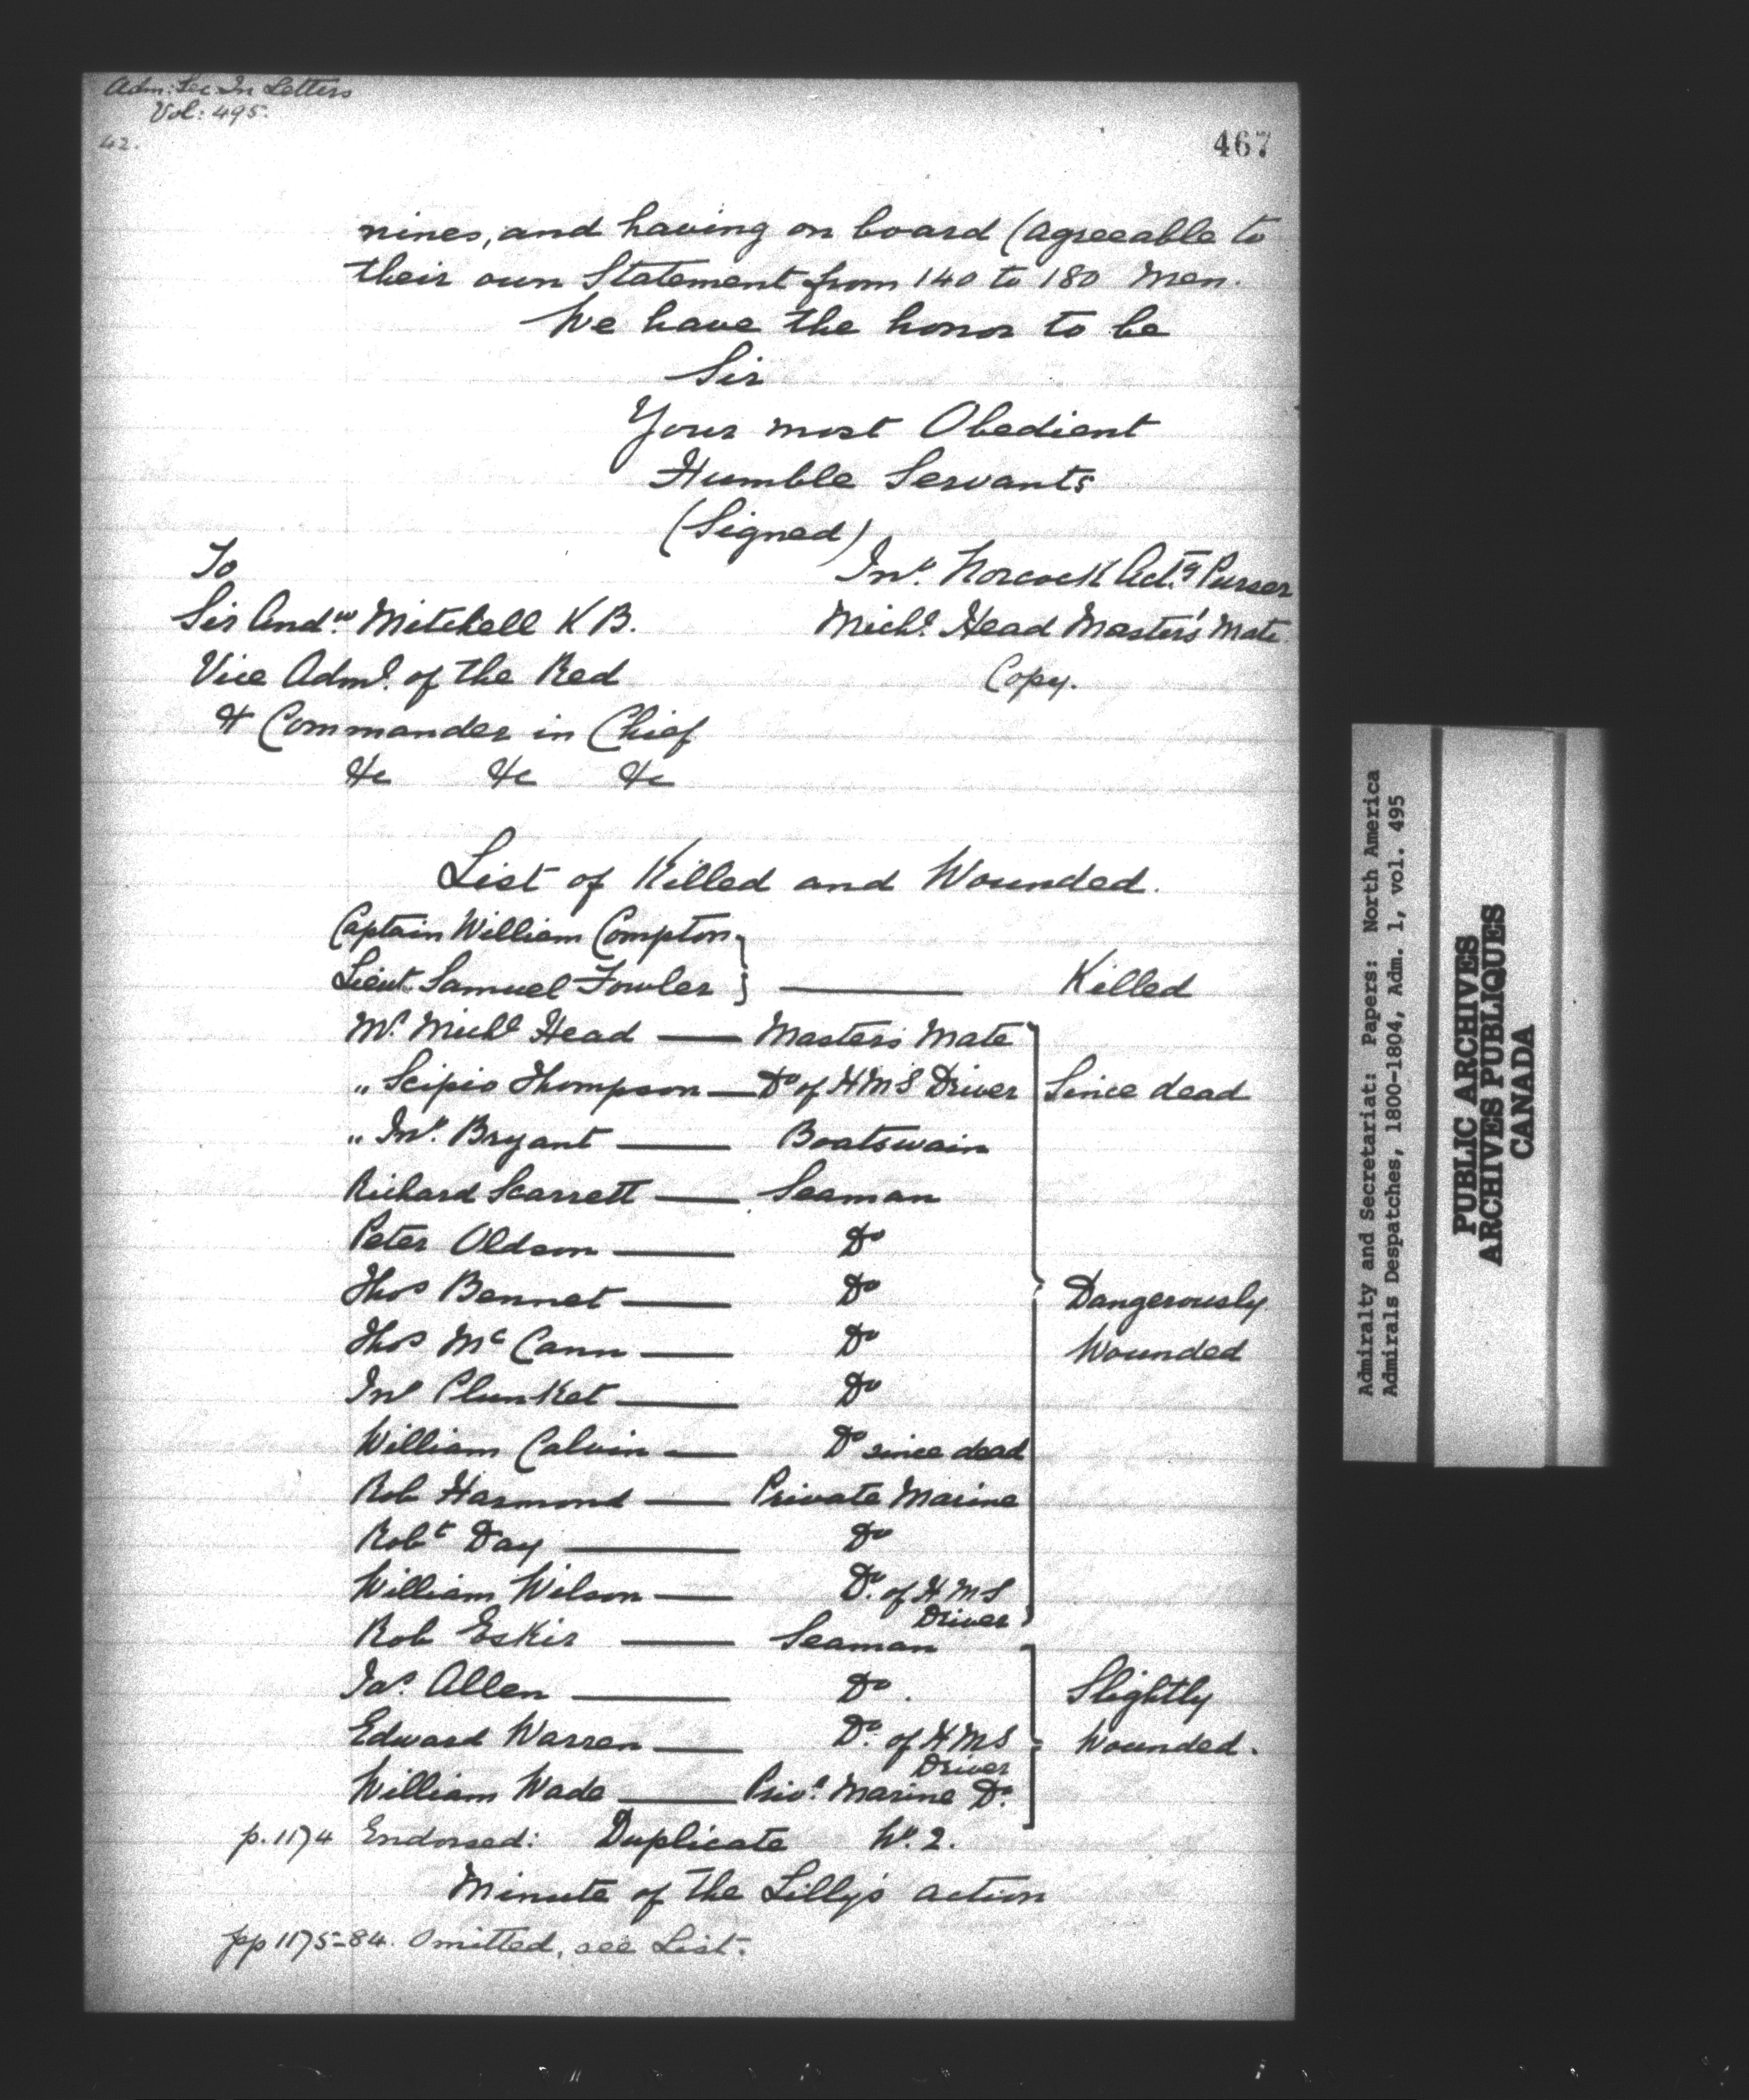 Adm: Sec In Letters
Vol: 495.
42.
467
nines, and having on board (agreeable to
their own Statement from 140 to 180 Men.
We have the honor to be
Sir
Your most Obedient
Humble Servants
(Signed)
Jnº. Norcock Actg. Purser
Michl. Head Master's Mate
Copy.
To
Sir Andw. Mitchell K B.
Vice Adml. of the Red
& Commander in Chief
&c &c &c
List of Killed and Wounded.
Captain William Compton
Lieut Samuel Fowler } — Killed
Mr. Michl Head — Master's Mate
" Scipio Thompson — Do of HMS Driver Since dead
" Jno. Bryant — Boatswain
Richard Scarrett — Seaman
Peter Oldson — Do
Thos Bennet — Do Dangerously
Thos McCann — Do Wounded
Jno Plunket — Do
William Calvin — Do since dead
Rob Harmond — Private Marine
Robt Day — Do
William Wilson — Do. of HMS
Driver
Rob Eskir — Seaman
Jas. Allen — Do. Slightly
Edward Warren — Do. of HMS Wounded.
Driver
William Wade — Privt. Marine Do.
p. 1174 Endorsed: Duplicate No. 2.
Minute of the Lilly's action
pp 1175-84. Omitted, see List.
Admiralty and Secretariat: Papers: North America
Admirals Despatches, 1800-1804, Adm. 1, vol. 495
PUBLIC ARCHIVES
ARCHIVES PUBLIQUES
CANADA